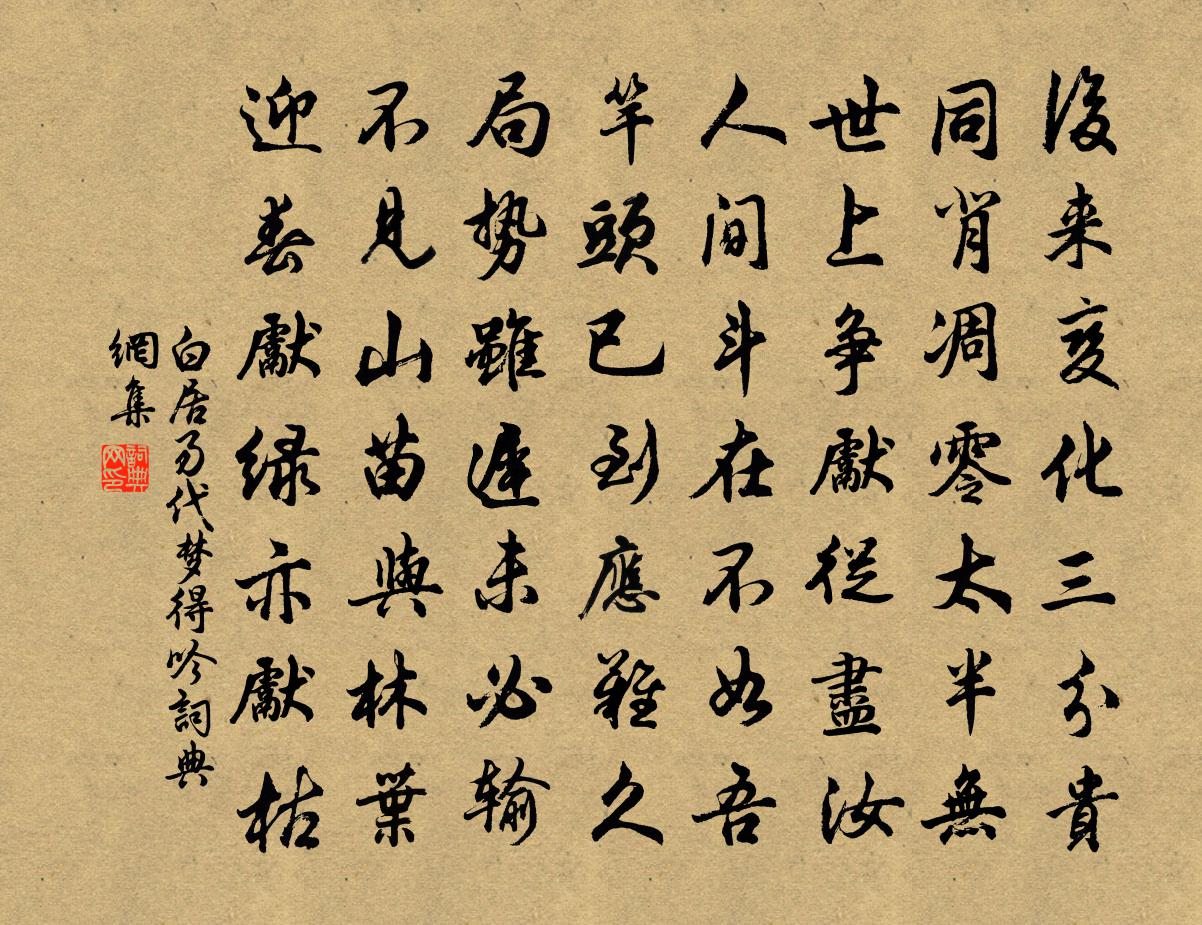 後来变化三分貴
同肖凋零太半無
世上争獻從盡汝
人间斗在不如吾
竿頭已到應難久
局势雖遲未必输
不見山苗與林葉
迎春獻绿亦獻枯
白居易代梦得吟詞典
網集
詞典
网印